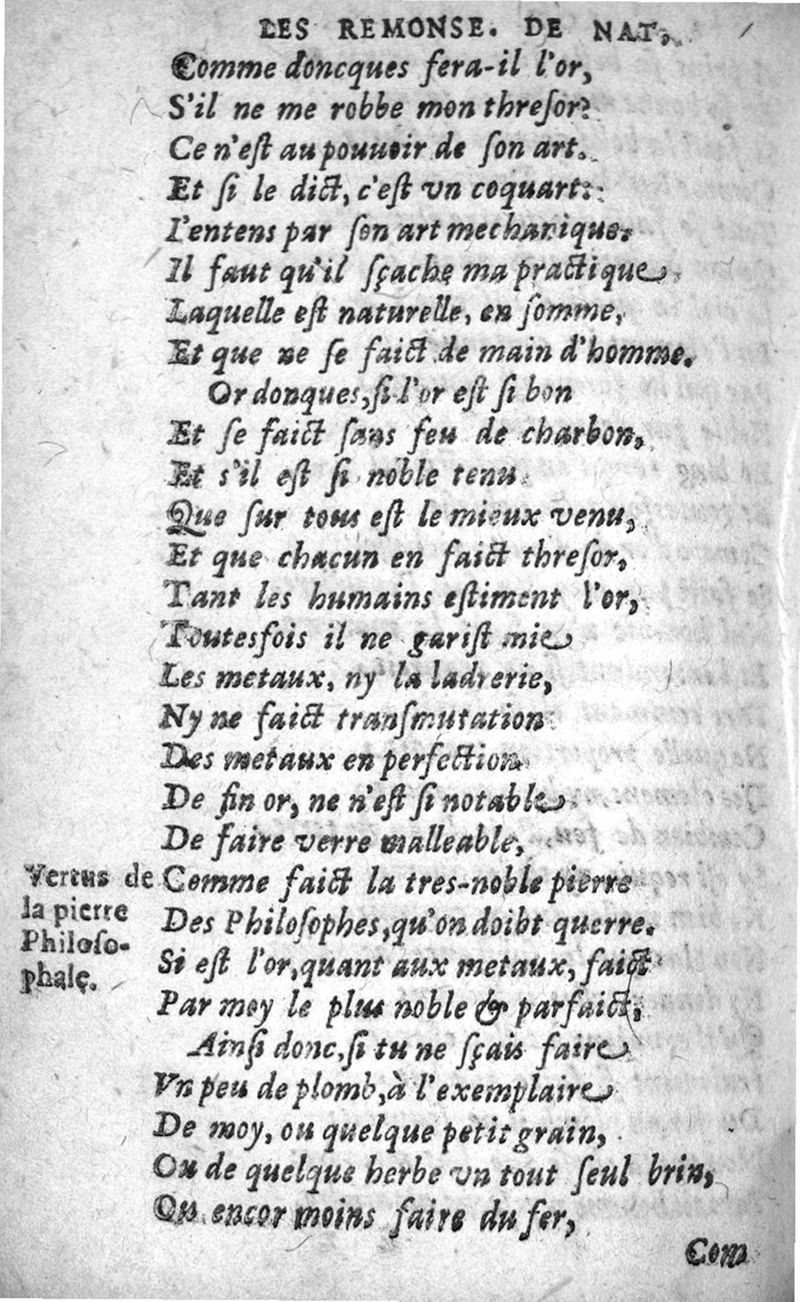 LES REMONSE. DE NAT,
Comme doncques fera-il l'or,
S'il ne me robbe mon threſor?
Ce n'eſt au pouuoir de ſon art.
Et ſi le dict, c'eſt vn coquart:
I'entens par ſon art mechanique.
Il faut qu'il ſçache ma practique,
Laquelle eſt naturelle, en ſomme,
Et que ne ſe faict de main d'homme.
Or donques, ſi l'or eſt ſi bon
Et ſe faict ſans feu de charbon,
Et s'il eſt ſi noble tenu
Que ſur tous eſt le mieux venu,
Et que chacun en faict threſor,
Tant les humains eſtiment l'or,
Toutesfois il ne gariſt mie
Les metaux, ny la ladrerie,
Ny ne faict tranſmutation
Des metaux en perfection
De fin or, ne n'eſt ſi notable
De faire verre malleable,
Vertus de
la pierre
Philoſo-
phale.
Comme faict la tres-noble pierre
Des Philoſophes, qu'on doibt querre.
Si eſt l'or, quant aux metaux, faict
Par moy le plus noble & parfaict,
Ainſi donc, ſi tu ne ſçais faire
Vn peu de plomb, à l'exemplaire
De moy, ou quelque petit grain,
Ou de quelque herbe vn tout ſeul brin,
Ou encor moins faire du fer,
Com